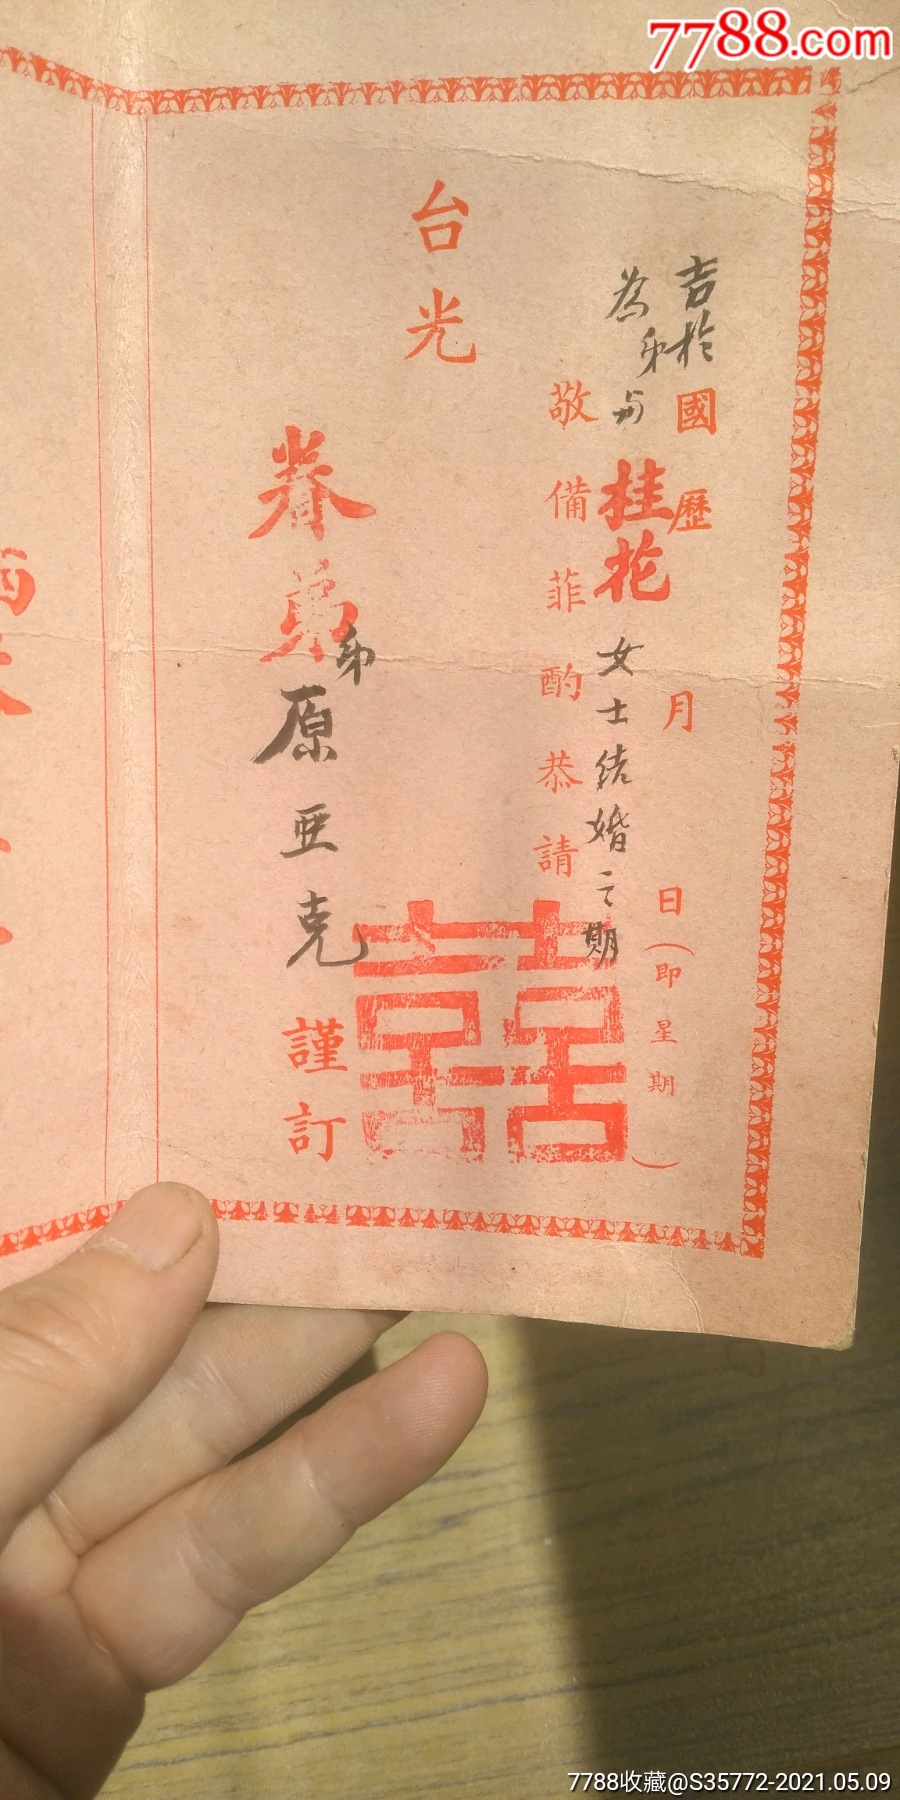 7788.com
吉於國歷 月 日(即星期 )
為弟与桂花女士结婚之期
敬備菲酌恭請
台光
眷弟
弟原亚克謹訂
囍
7788收藏@S35772-2021.05.09